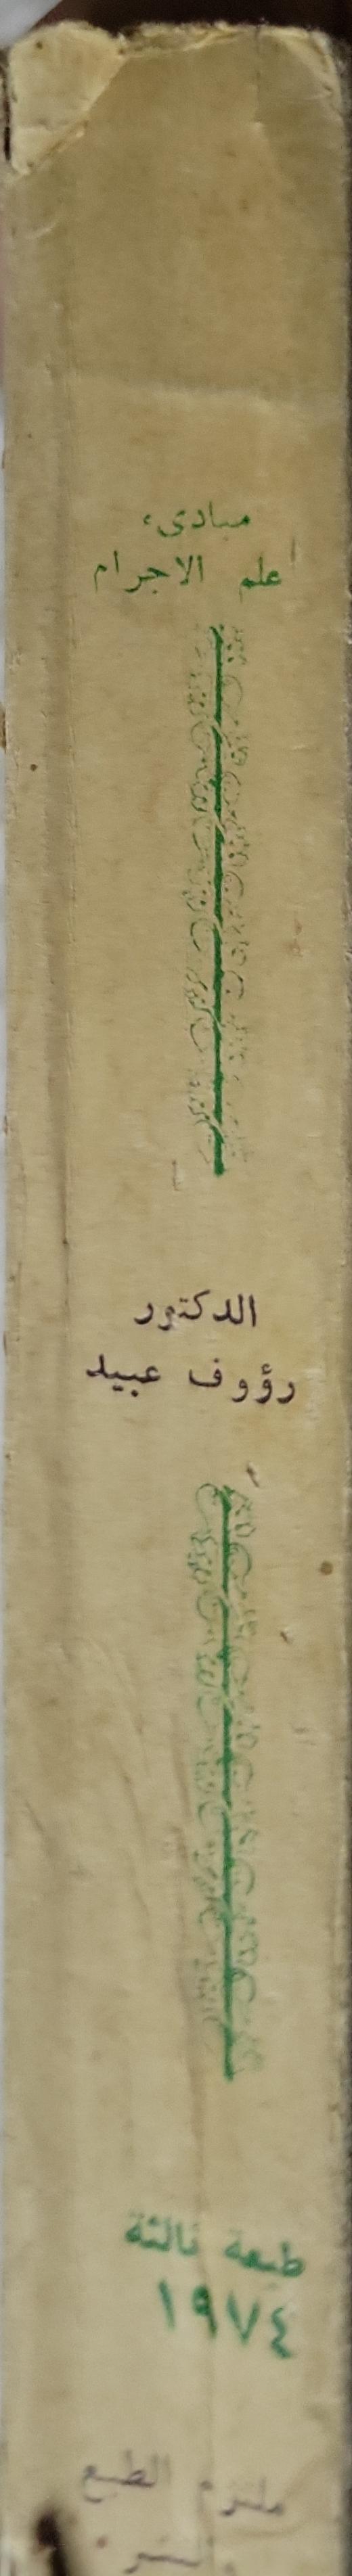 مبادىء
علم الاجرام
الدكتور
رؤوف عبيد
طبعة ثالثة
١٩٧٤
ملتزم الطبع